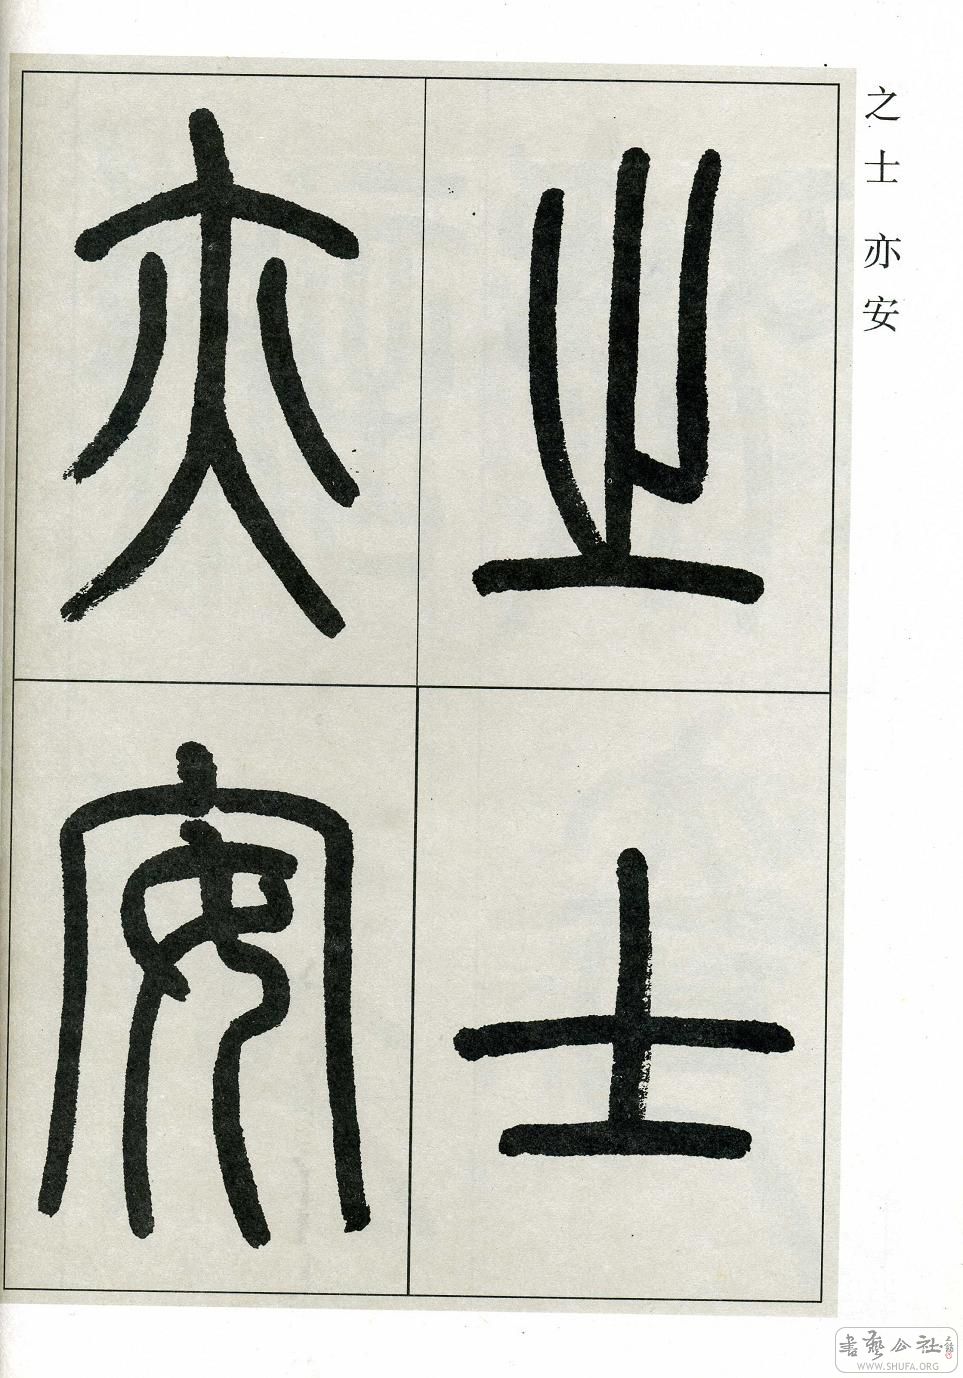 之士
亦安
之士 亦安
書藝公社
WWW.SHUFA.ORG